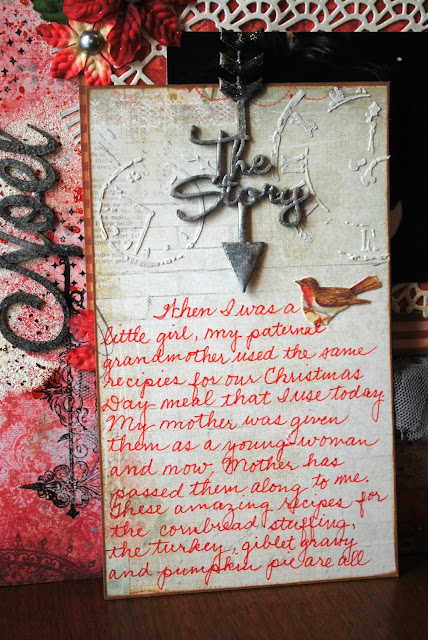 Noel
The
Story
When I was a
little girl, my paternal
grandmother used the same
recipies for our Christmas
Day meal that I use today.
My mother was given
them as a young woman
and now Mother has
passed them along to me.
These amazing recipes for
the cornbread stuffing,
the turkey, giblet gravy
and pumpkin pie are all